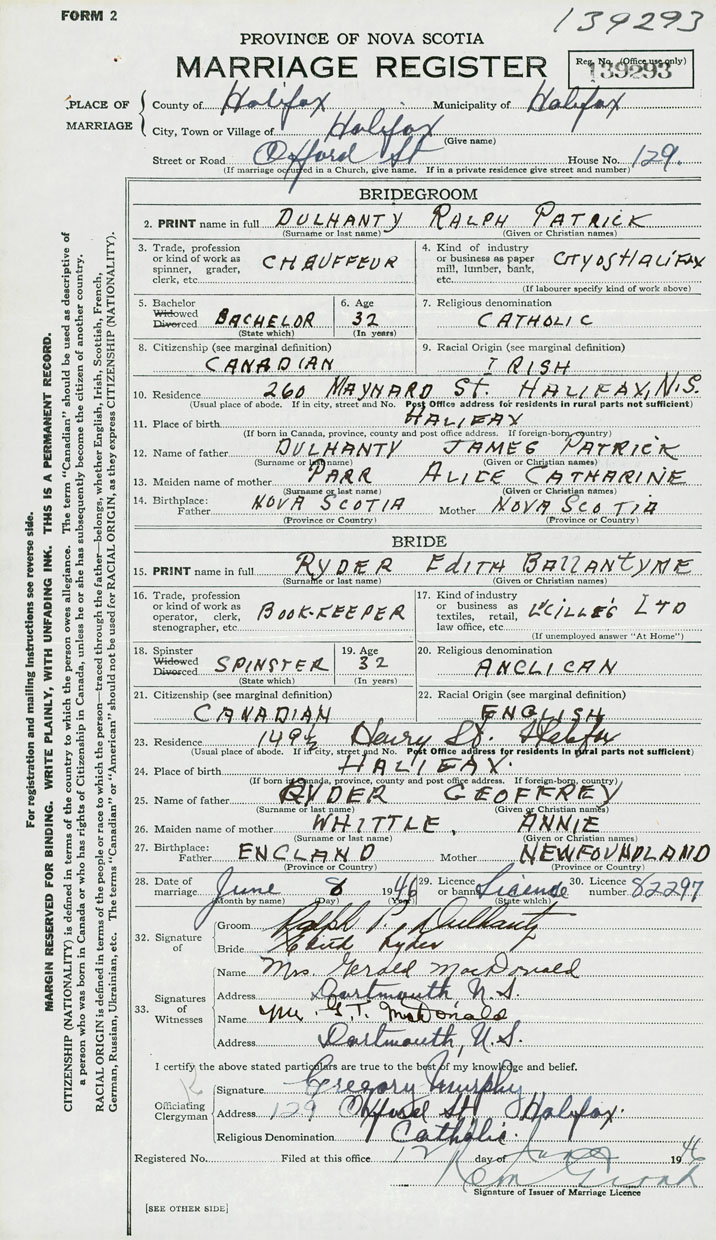 FORM 2
139293
PROVINCE OF NOVA SCOTIA
MARRIAGE REGISTER
Reg. No. (Office use only)
139293
PLACE OF MARRIAGE
County of Halifax Municipality of Halifax
City, Town or Village of Halifax
(Give name)
Street or Road Oxford St House No. 129.
(If marriage occurred in a Church, give name. If in a private residence give street and number)
BRIDEGROOM
2. PRINT name in full DULHANTY RALPH PATRICK
(Surname or last name) (Given or Christian names)
3. Trade, profession or kind of work as spinner, grader, clerk, etc. CHAUFFEUR
4. Kind of industry or business as paper mill, lumber, bank, etc. CITY OF HALIFAX
(If labourer specify kind of work above)
5. Bachelor Widowed Divorced BACHELOR
(State which)
6. Age 32
(In years)
7. Religious denomination
CATHOLIC
8. Citizenship (see marginal definition)
CANADIAN
9. Racial Origin (see marginal definition)
IRISH
10. Residence 260 MAYNARD ST. HALIFAX, N.S.
(Usual place of abode. If in city, street and No. Post Office address for residents in rural parts not sufficient)
11. Place of birth HALIFAX
(If born in Canada, province, county and post office address. If foreign-born, country)
12. Name of father DULHANTY JAMES PATRICK
(Surname or last name) (Given or Christian names)
13. Maiden name of mother PARR ALICE CATHARINE
(Surname or last name) (Given or Christian names)
14. Birthplace: Father NOVA SCOTIA Mother NOVA SCOTIA
(Province or Country) (Province or Country)
BRIDE
15. PRINT name in full RYDER EDITH BALLANTYNE
(Surname or last name) (Given or Christian names)
16. Trade, profession or kind of work as operator, clerk, stenographer, etc BOOK-KEEPER
17. Kind of industry or business as textiles, retail, law office, etc. LUCILLE'S LTD
(If unemployed answer "At Home")
18. Spinster Widowed Divorced SPINSTER
(State which)
19. Age 32
(In years)
20. Religious denomination
ANGLICAN
21. Citizenship (see marginal definition)
CANADIAN
22. Racial Origin (see marginal definition)
ENGLISH
23. Residence 149½ Henry St. Halifax
(Usual place of abode. If in city, street and No. Post Office address for residents in rural parts not sufficient)
24. Place of birth HALIFAX.
(If born in Canada, province, county and post office address. If foreign-born, country)
25. Name of father RYDER GEOFFREY
(Surname or last name) (Given or Christian names)
26. Maiden name of mother WHITTLE, ANNIE
(Surname or last name) (Given or Christian names)
27. Birthplace: Father ENGLAND Mother NEWFOUNDLAND
(Province or Country) (Province or Country)
28. Date of marriage June 8 1946 29. Licence or bann Licence 30. Licence number 82297
(Month by name) (Day) (Year) (State which)
32. Signature of
Groom Ralph P. Dulhanty
Bride Edith Ryder
33. Signatures of Witnesses
Name Mrs. Gerald MacDonald
Address Dartmouth N.S.
Name Mr. G.T. MacDonald
Address Dartmouth, N.S.
I certify the above stated particulars are true to the best of my knowledge and belief.
Officiating Clergyman
Signature Gregory Murphy
Address 129 Oxford St Halifax.
Religious Denomination Catholic.
Registered No. Filed at this office 12 day of June 1946
Signature of Issuer of Marriage Licence
[SEE OTHER SIDE]
For registration and mailing instructions see reverse side.
MARGIN RESERVED FOR BINDING. WRITE PLAINLY, WITH UNFADING INK. THIS IS A PERMANENT RECORD.
CITIZENSHIP (NATIONALITY) is defined in terms of the country to which the person owes allegiance. The term "Canadian" should be used as descriptive of
a person who was born in Canada or who has rights of Citizenship in Canada, unless he or she has subsequently become the citizen of another country.
RACIAL ORIGIN is defined in terms of the people or race to which the person—traced through the father—belongs, whether English, Irish, Scottish, French,
German, Russian, Ukrainian, etc. The terms "Canadian" or "American" should not be used for RACIAL ORIGIN, as they express CITIZENSHIP (NATIONALITY).